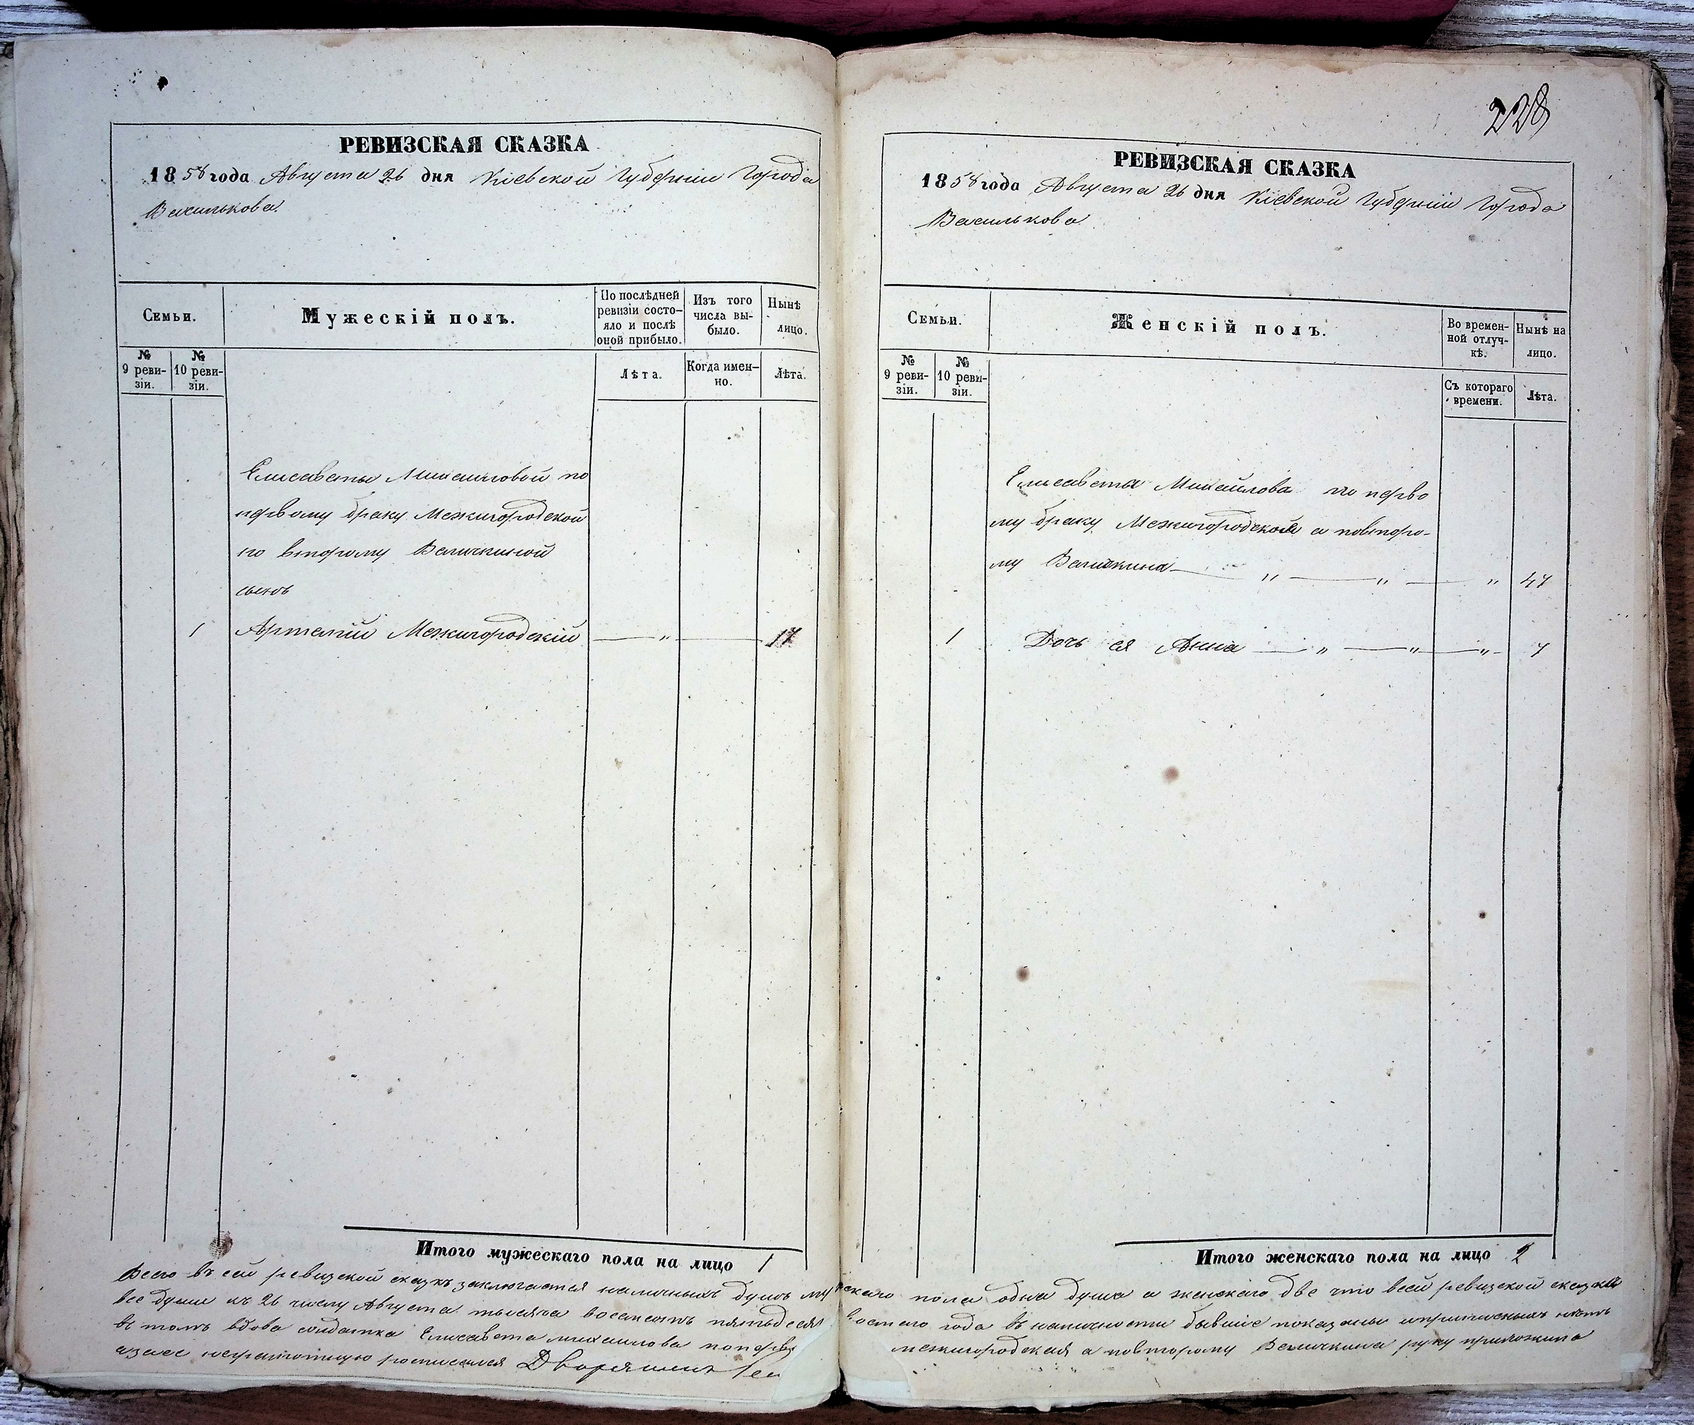 РЕВИЗСКАЯ СКАЗКА
1858 года Августа 26 дня Кіевской Губерніи Города
Василькова
Семьи.
Мужескій полъ.
По послѣдней ревизіи состояло и послѣ оной прибыло.
Изъ того числа выбыло.
Нынѣ лицо.
№ 9 ревизіи.
№ 10 ревизіи.
Лѣта.
Когда именно.
Лѣта.
Елисаветы Михайловой по
первому браку Межигородской
по второму Величкиной
сынъ
1 Артемій Межигородскій — " — 17
Итого мужескаго пола на лицо 1
228
РЕВИЗСКАЯ СКАЗКА
1858 года Августа 26 дня Кіевской Губерніи Города
Василькова
Семьи.
Женскій полъ.
Во временной отлучкѣ.
Нынѣ на лицо.
№ 9 ревизіи.
№ 10 ревизіи.
Съ котораго времени.
Лѣта.
Елисавета Михайлова по перво
му браку Межигородская а повторо-
му Величкина — " — " — " 47
1 Дочь ея Анна — " — " — " — 7
Итого женскаго пола на лицо 2
Всего въ сей ревизской сказкѣ заключается наличныхъ душъ мужескаго пола одна душа а женскаго две что всей ревизской сказкѣ
все души къ 26 числу Августа тысяча восемсотъ пятьдесятъ восмаго года въ наличности бывшіе показаны и прописныхъ нѣтъ
въ томъ вдова солдатка Елисавета Михайлова по первому Межигородская а повторому Величкина руку приложила
а за нее неграмотную росписался Дворянинъ